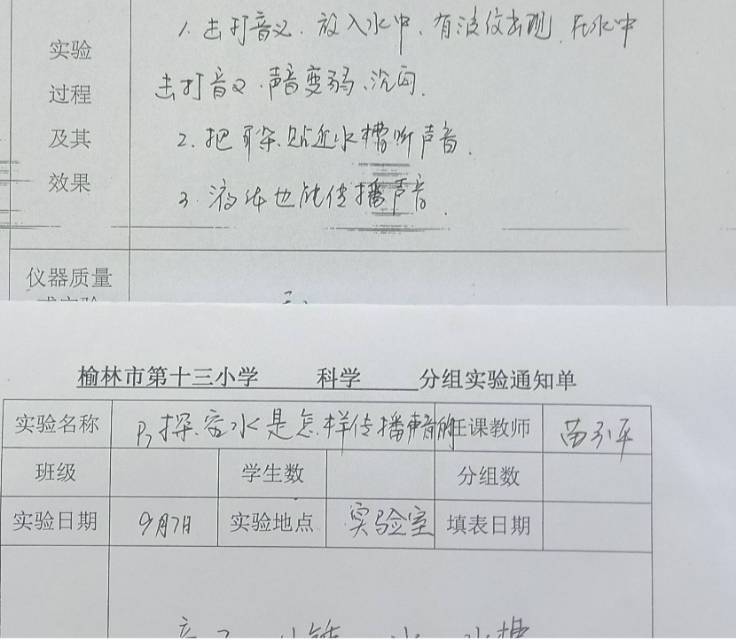 实验
过程
及其
效果
1. 击打音叉. 放入水中、有波纹出现. 在水中
击打音叉. 声音变弱、沉闷.
2. 把耳朵贴近水槽听声音.
3. 液体也能传播声音.
仪器质量
榆林市第十三小学 科学 分组实验通知单
实验名称 探究水是怎样传播声音的 任课教师
班级 学生数 分组数
实验日期 9月7日 实验地点 实验室 填表日期